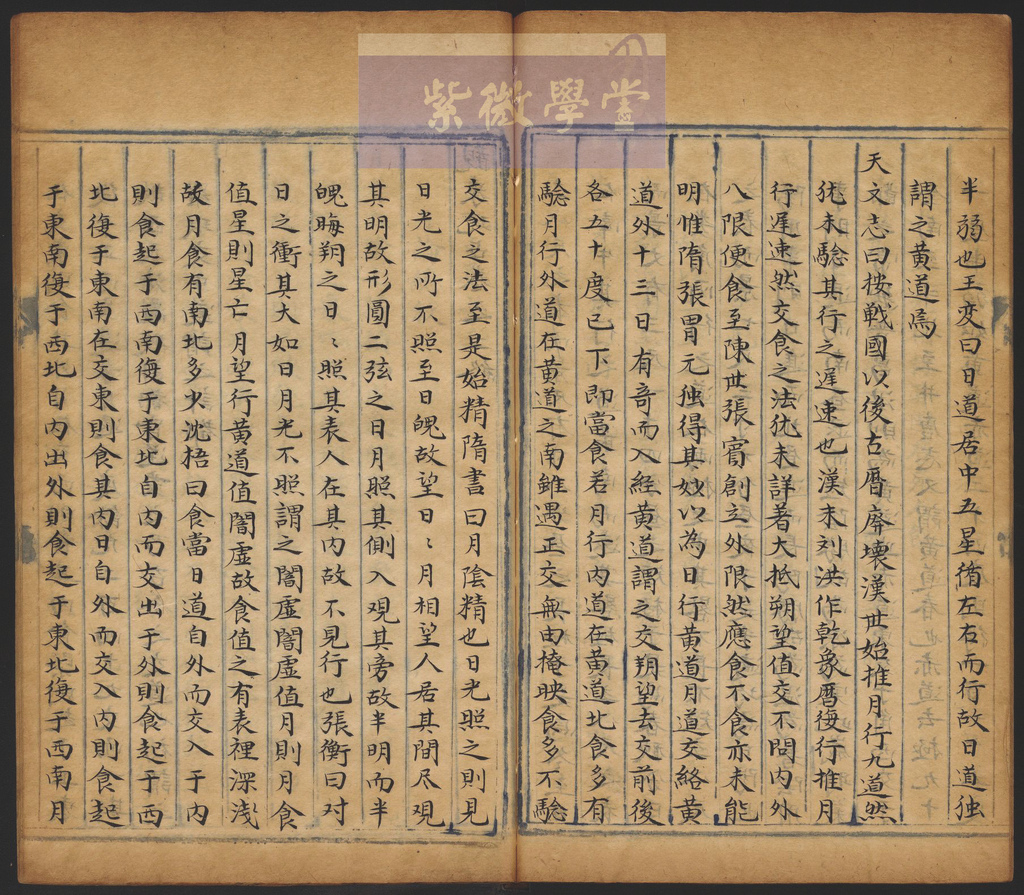 紫微學堂
半弱也王变曰日道居中五星循左右而行故日道独
謂之黄道焉
天文志曰按戦國以後古曆廃壊漢世始推月行九道然
犹未騐其行之遅速也漢末刘洪作乾象曆復行推月
行遅速然交食之法犹未詳著大抵朔望值交不問内外
八限便食至陳世張賔創立外限然應食不食亦未能
明惟隋張胃元独得其妙以為日行黄道月道交絡黄
道外十三日有竒而入經黄道謂之交朔望去交前後
各五十度已下即當食若月行内道在黄道北食多有
騐月行外道在黄道之南雖遇正交無由掩映食多不騐
交食之法至是始精隋書曰月陰精也日光照之則見
日光之所不照至日魄故望日〻月相望人居其間尽观
其明故形圓二弦之日月照其側入观其旁故半明而半
魄晦朔之日〻照其表人在其内故不見行也張衡曰对
日之衝其大如日月光不照謂之闇虚闇虚值月則月食
值星則星亡月望行黄道值闇虚故食值之有表裡深浅
故月食有南北多少沈桰曰食當日道自外而交入于内
則食起于西南復于東北自内而交出于外則食起于西
北復于東南在交東則食其内日自外而交入内則食起
于東南復于西北自内出外則食起于東北復于西南月